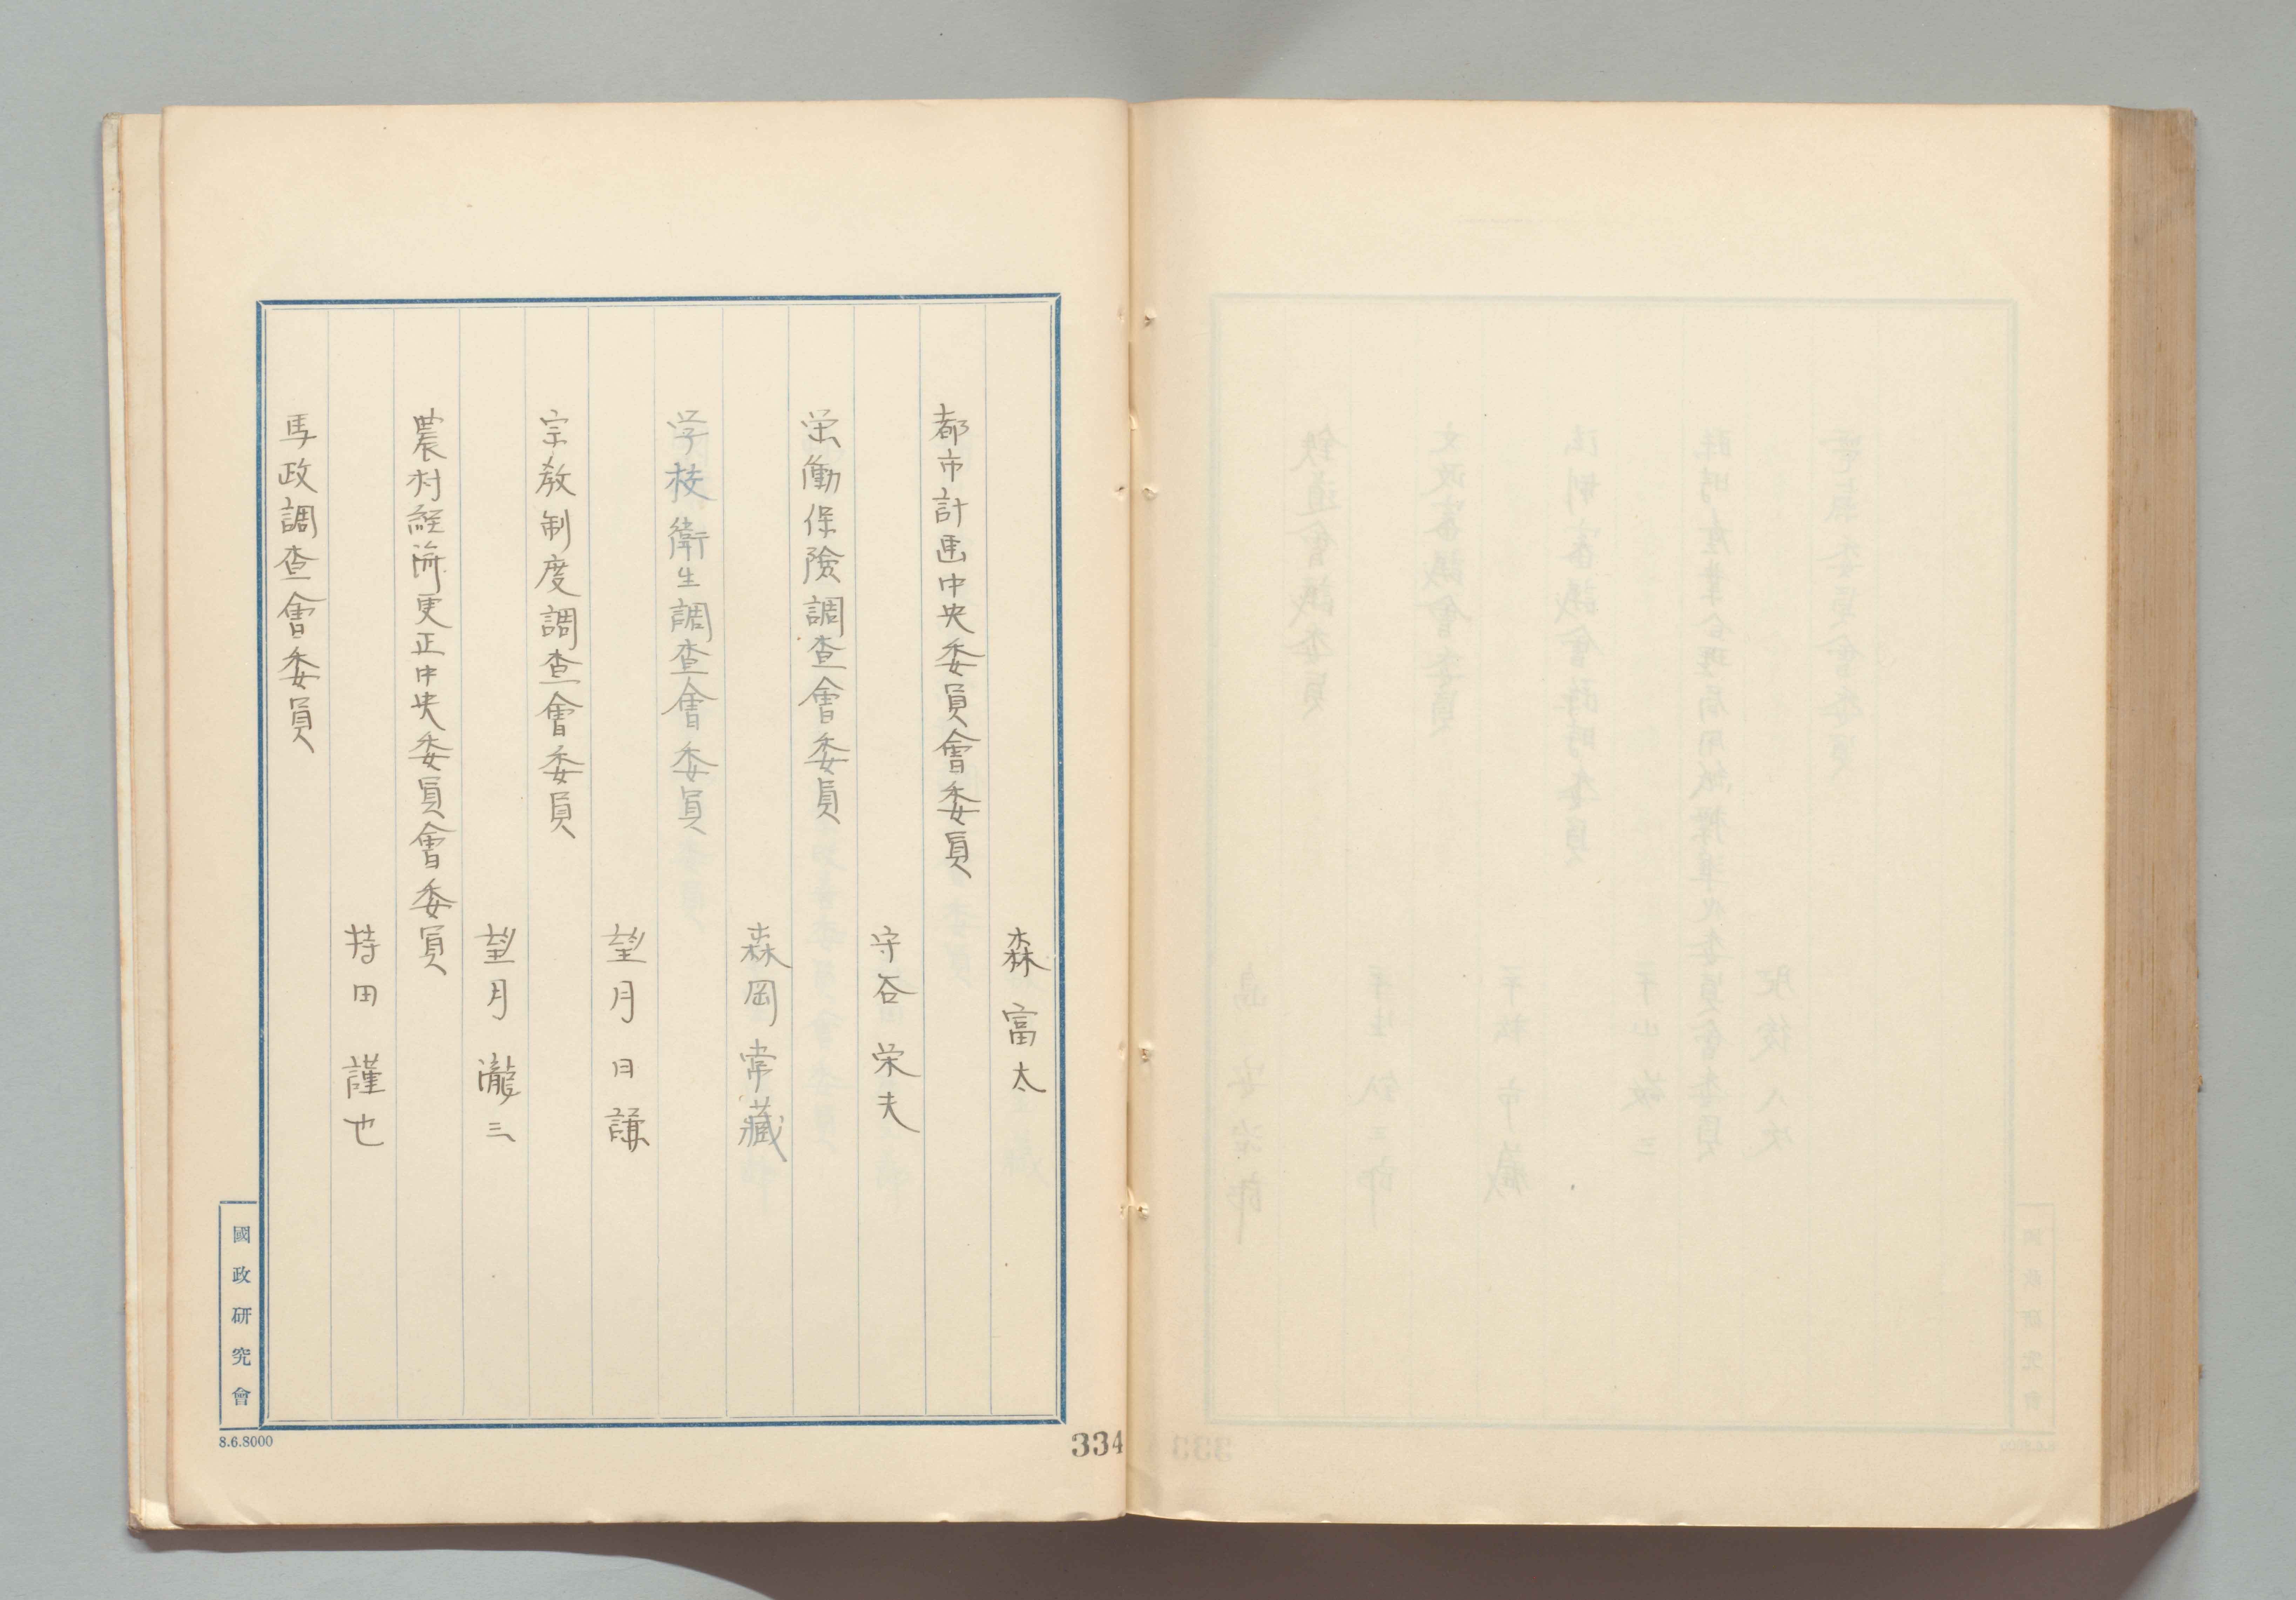 森富太
都市計画中央委員會委員
守谷栄夫
労働保險調査會委員
森岡常藏
学校衛生調査會委員
望月日謙
宗教制度調査會委員
望月瀧三
農村経済更正中央委員會委員
持田謹也
馬政調査會委員
國政研究會
8.6.8000
334